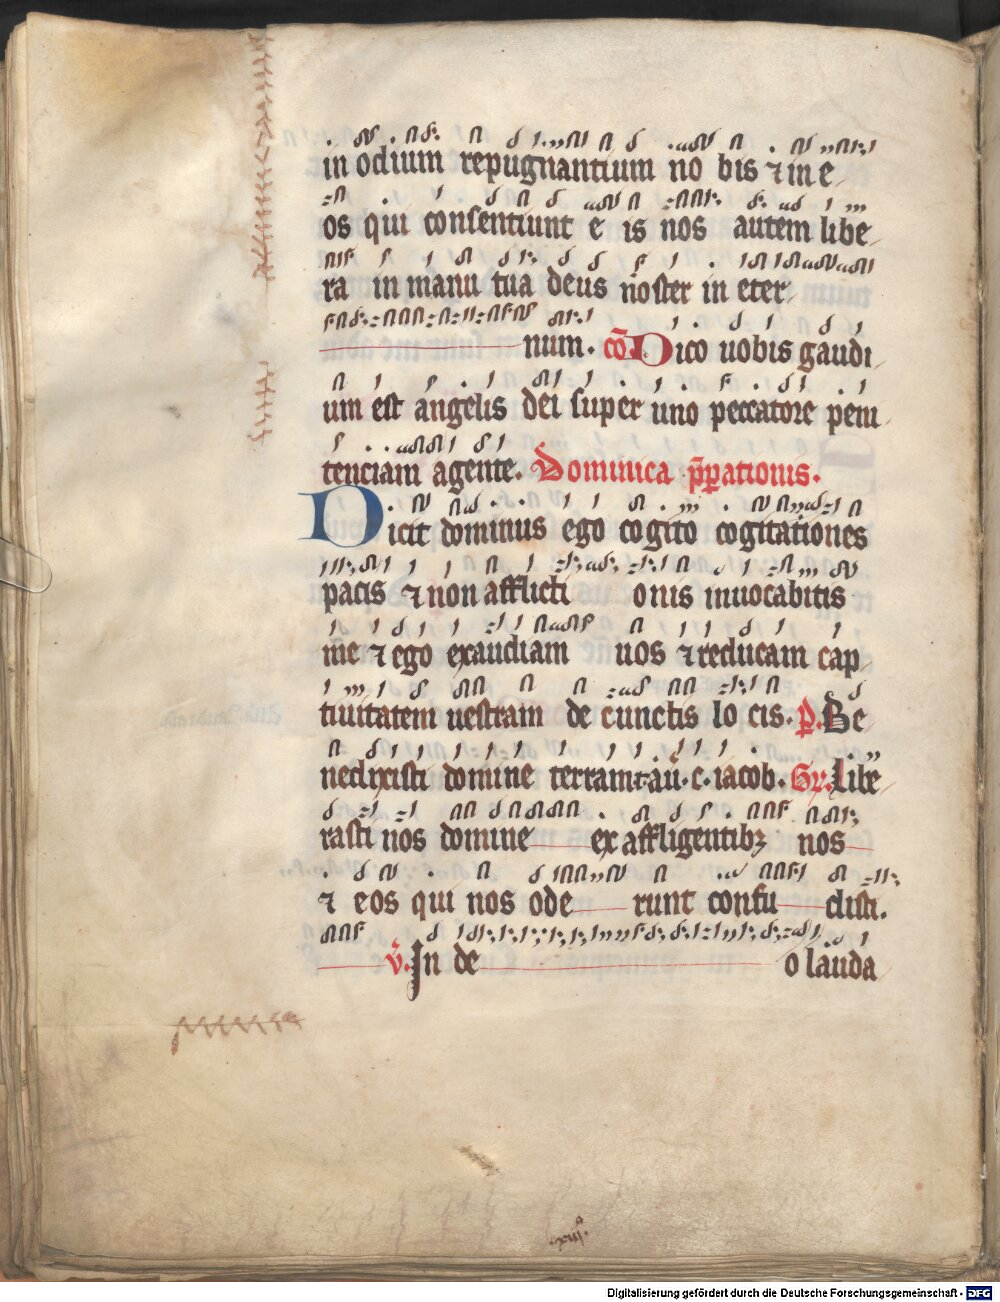 in odium repugnantium no bis ⁊ in e
os qui consentiunt e is nos autem libe
ra in manu tua deus noster in eter
num. co̅. Dico uobis gaudi
um est angelis dei super uno peccatore peni
tenciam agente. Dominica p̅p̅ationis.
Dicit dominus ego cogito cogitationes
pacis ⁊ non afflicti onis inuocabitis
me ⁊ ego exaudiam uos ⁊ reducam cap
tiuitatem uestram de cunctis lo cis. p̅. Be
nedixisti domine terram t. au̅. c. iacob. Gr. Libe
rasti nos domine ex affligentibꝫ nos
⁊ eos qui nos ode runt confu disti.
v̅. In de o lauda
.xiij.
Digitalisierung gefördert durch die Deutsche Forschungsgemeinschaft - DFG